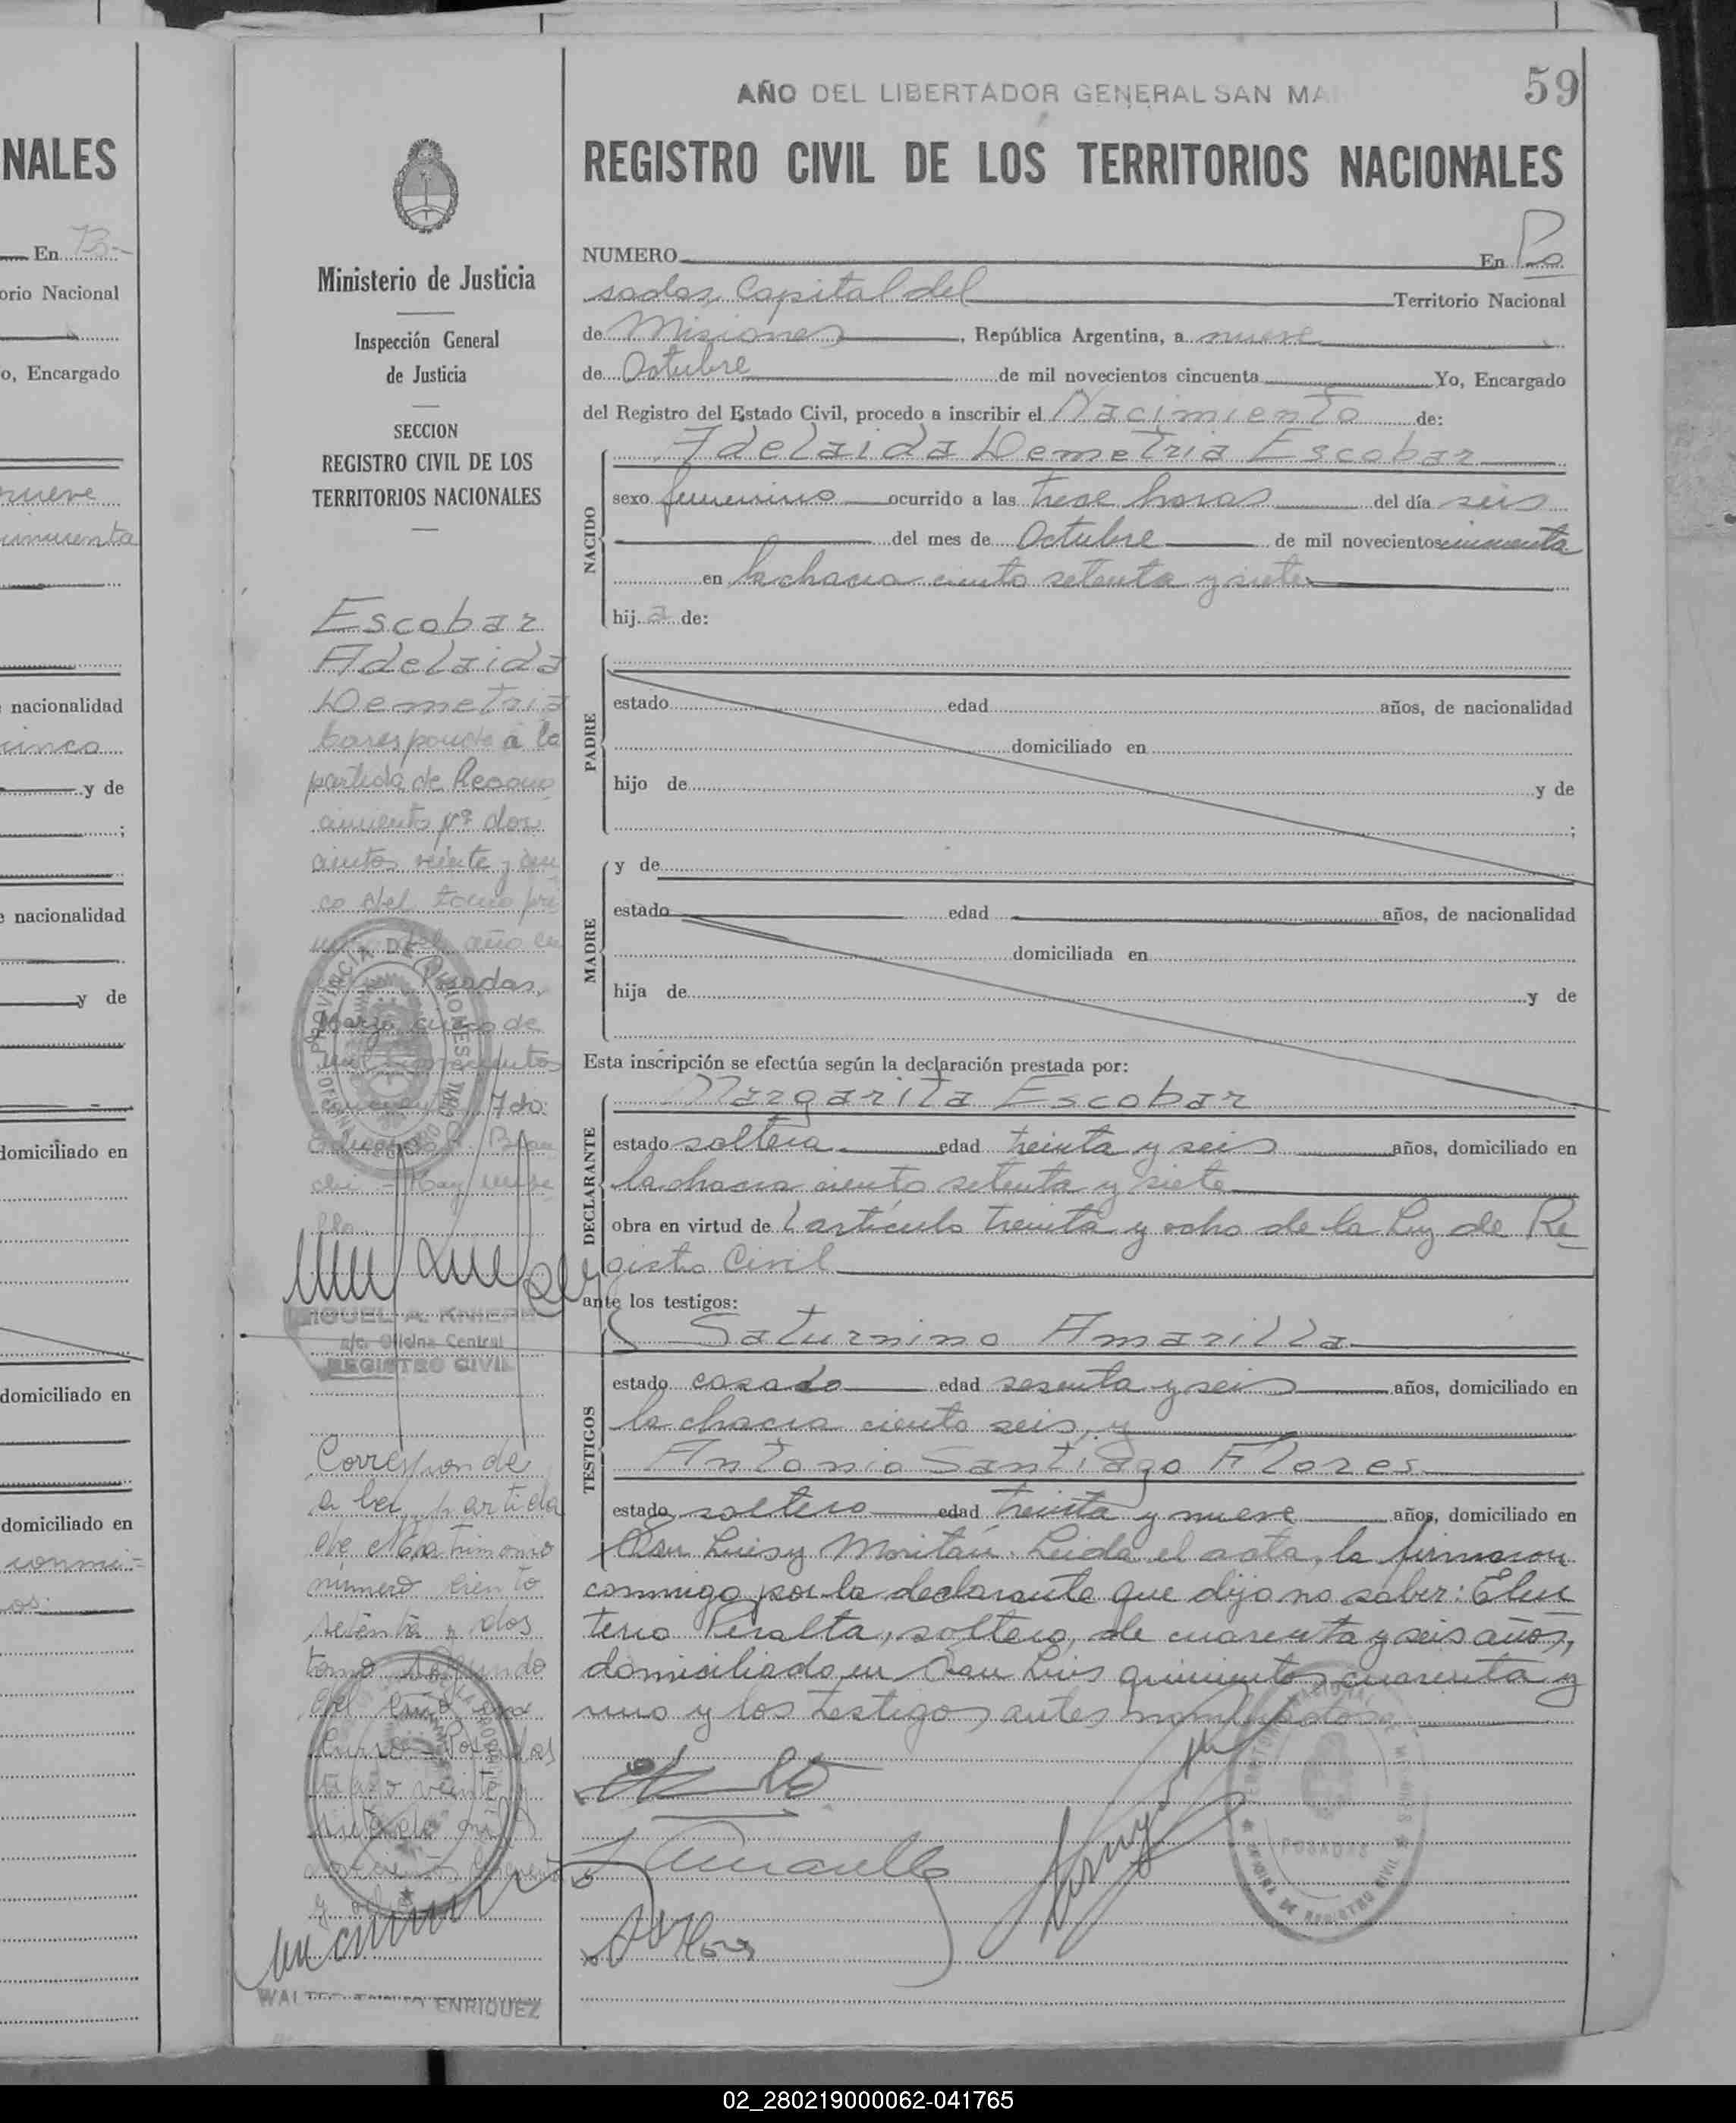 AÑO DEL LIBERTADOR GENERAL SAN MA
59
REGISTRO CIVIL DE LOS TERRITORIOS NACIONALES
NUMERO En Po
sadas, Capital del Territorio Nacional
de Misiones, República Argentina, a nueve
de Octubre de mil novecientos cincuenta Yo, Encargado
del Registro del Estado Civil, procedo a inscribir el Nacimiento de:
NACIDO
Adelaida Demetria Escobar
sexo femenino ocurrido a las trece horas del día seis
del mes de Octubre de mil novecientos cincuenta
en la chacra ciento setenta y siete
hij a de:
PADRE
estado edad años, de nacionalidad
domiciliado en
hijo de y de
;
MADRE
y de
estado edad años, de nacionalidad
domiciliada en
hija de y de
Esta inscripción se efectúa según la declaración prestada por:
DECLARANTE
Margarita Escobar
estado soltera edad treinta y seis años, domiciliado en
la chacra ciento setenta y siete
obra en virtud del artículo treinta y ocho de la Ley de Re
gistro Civil
ante los testigos:
TESTIGOS
Saturnino Amarilla
estado casado edad sesenta y seis años, domiciliado en
la chacra ciento seis, y
Antonio Santiago Flores
estado soltero edad treinta y nueve años, domiciliado en
San Luis y Moritán. Leida el acta, la firmaron
conmigo, por la declarante que dijo no saber: Eleu
terio Peralta, soltero, de cuarenta y seis años,
domiciliado en San Luis quinientos cuarenta y
uno y los testigos antes nombrados
Amarilla
Flores
POSADAS
OFICINA DE REGISTRO CIVIL
Ministerio de Justicia
Inspección General
de Justicia
SECCION
REGISTRO CIVIL DE LOS
TERRITORIOS NACIONALES
Escobar
Adelaida
Demetria
Corresponde a la
partida de Recono
cimiento nº dos
cientos veinte y cin
co del tomo pri
mero del año en
Posadas,
Marzo cinco de
mil novecientos
PROVINCIA DE MISIONES
MIGUEL A. KNIEF
a/c. Oficina Central
REGISTRO CIVIL
Corresponde
a la partida
de Matrimonio
número ciento
setenta y dos
tomo segundo
del año en
curso Posadas
veinte
y
WALTER ENRIQUEZ
NALES
En B-
orio Nacional
o, Encargado
nueve
cincuenta
nacionalidad
cinco
y de
;
nacionalidad
y de
domiciliado en
domiciliado en
domiciliado en
conmi=
02_280219000062-041765